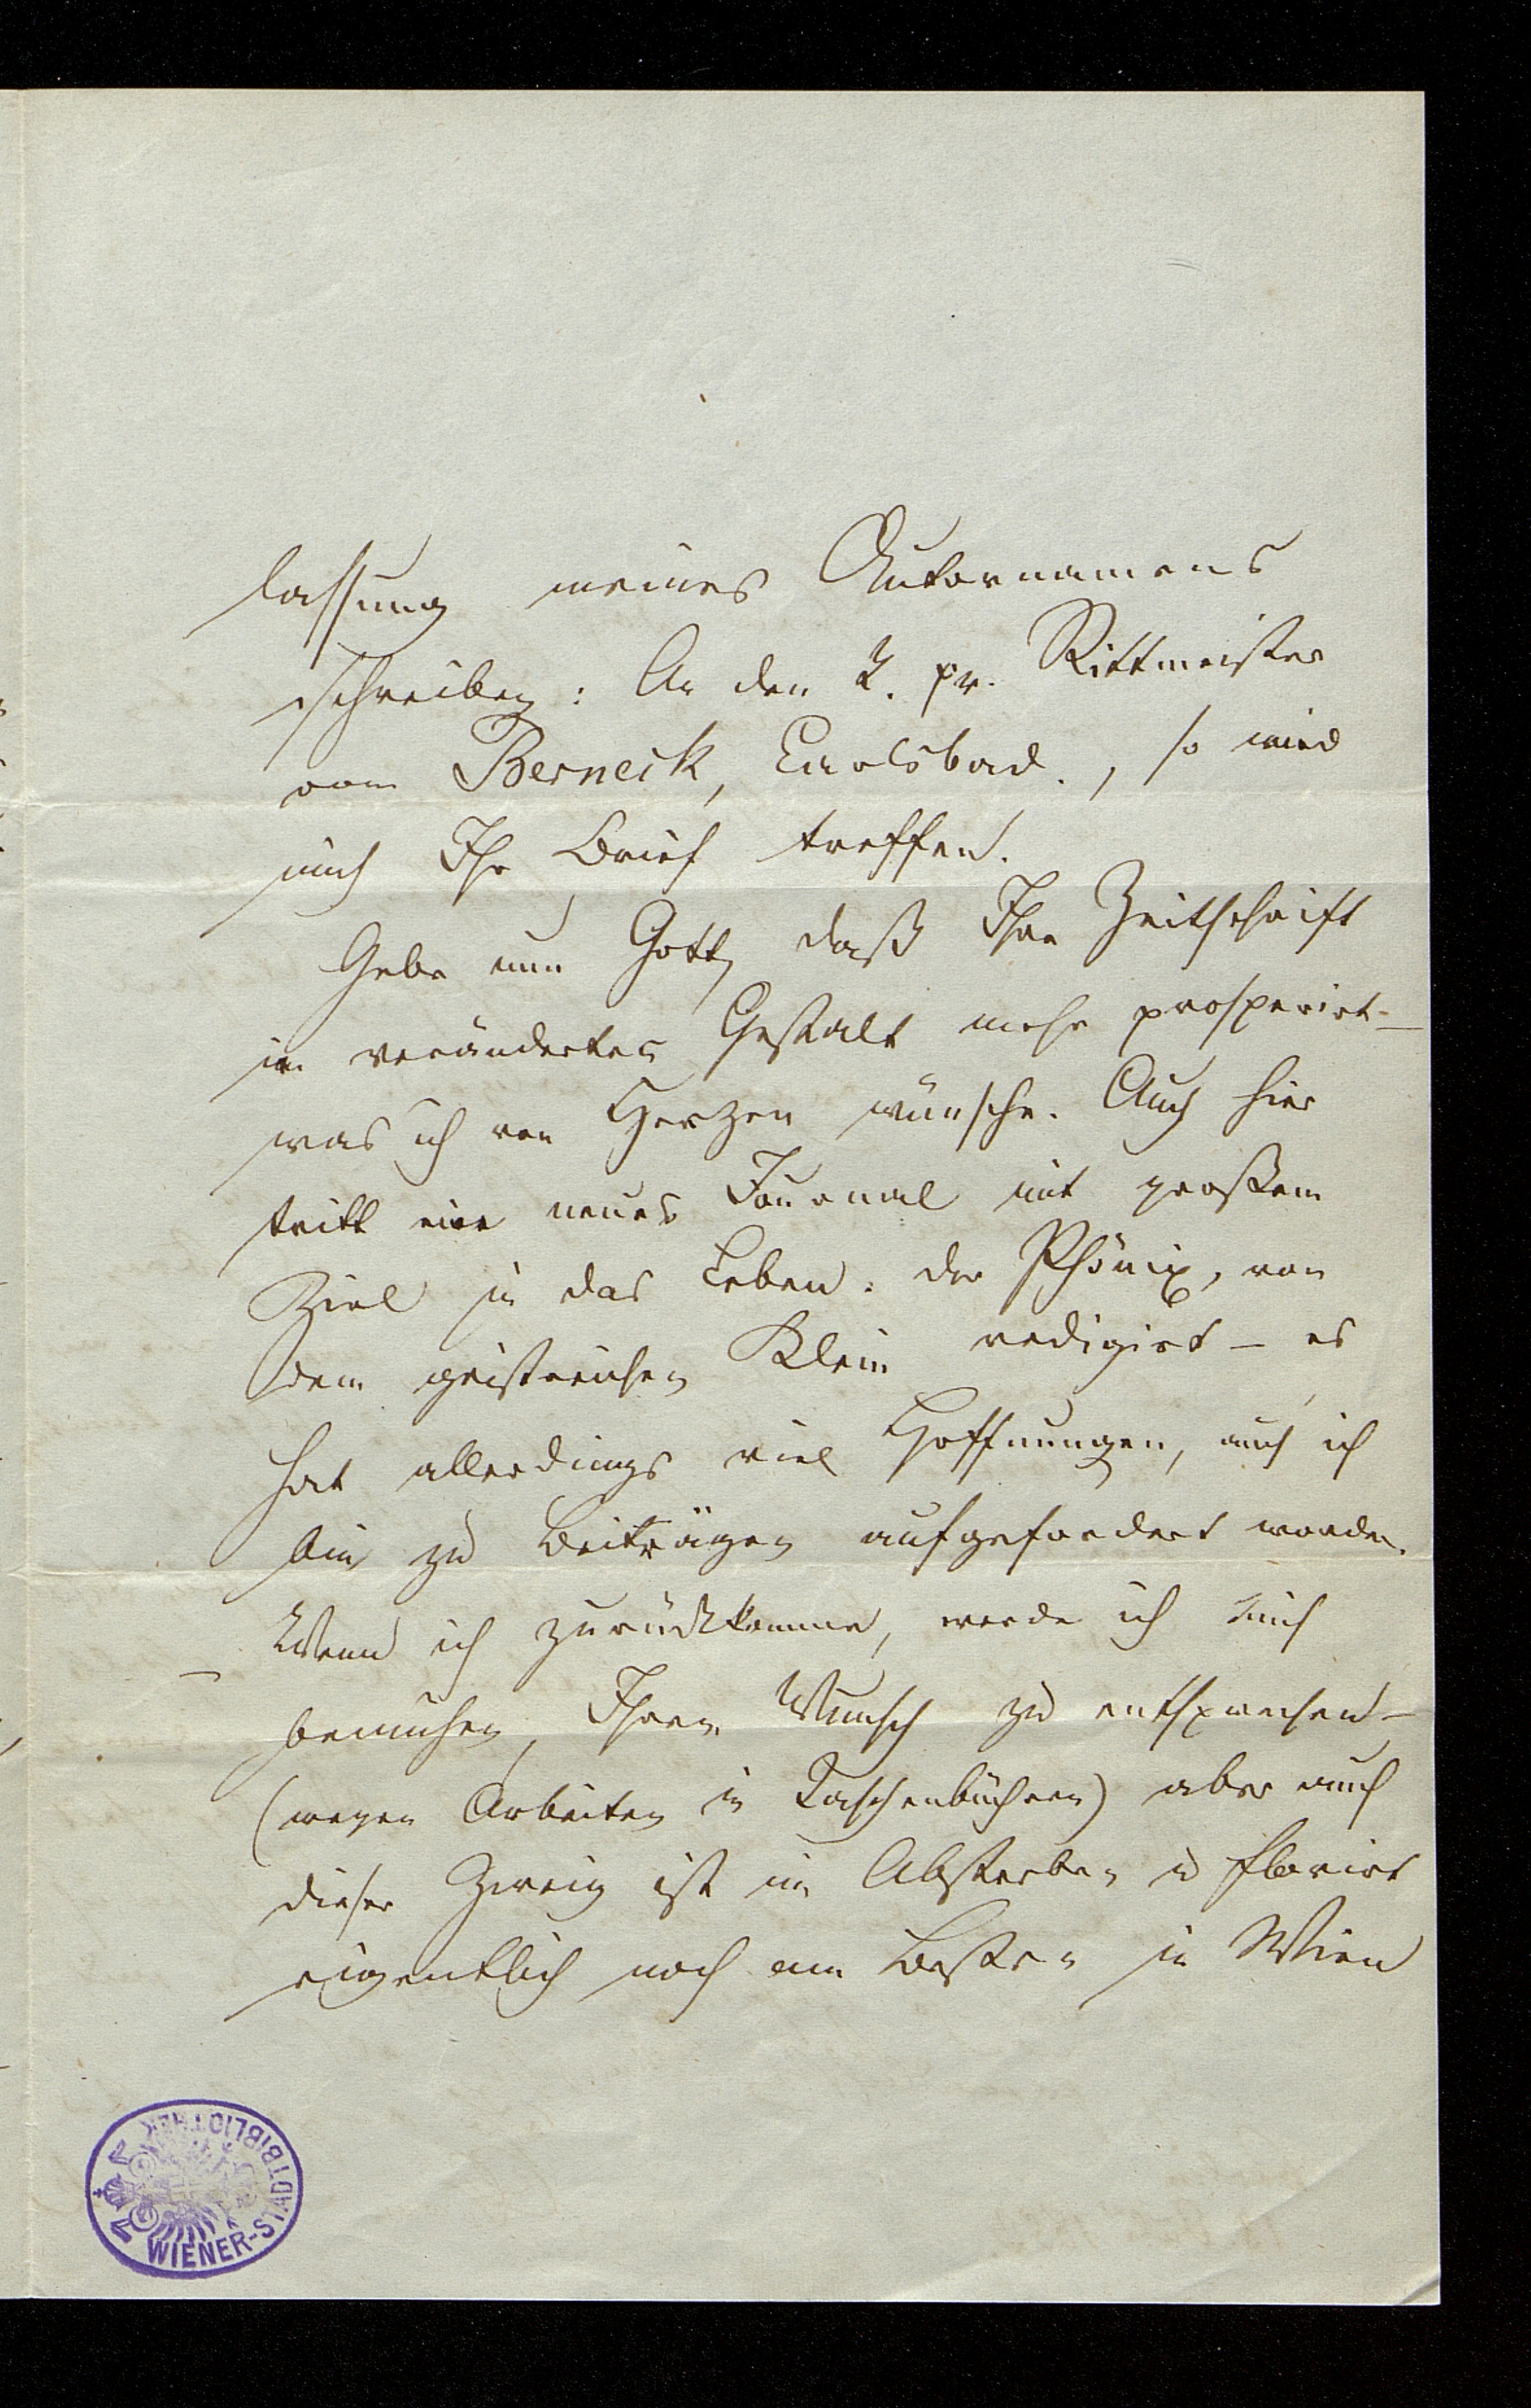 lassung meines Autornamens
schreiben: An den K. pr. Rittmeister
von Berneck, Carlsbad., so wird
mich Ihr Brief treffen.
Gebe nun Gott, daß Ihre Zeitschrift
in veränderter Gestalt mehr prosperirt –
was ich von Herzen wünsche. Auch hier
tritt ein neues Journal mit großem
Ziel in das Leben: der Phönix, von
dem geistreichen Klein redigirt – es
hat allerdings viel Hoffnungen, auch ich
bin zu Beiträgen aufgefordert worden.
Wenn ich zurückkomme, werde ich mich
bemühen, Ihrem Wunsch zu entsprechen –
(wegen Arbeiten in Taschenbüchern) aber auch
dieser Zweig ist im Absterben u florirt
eigentlich noch am Besten in Wien
WIENER-STADTBIBLIOTHEK